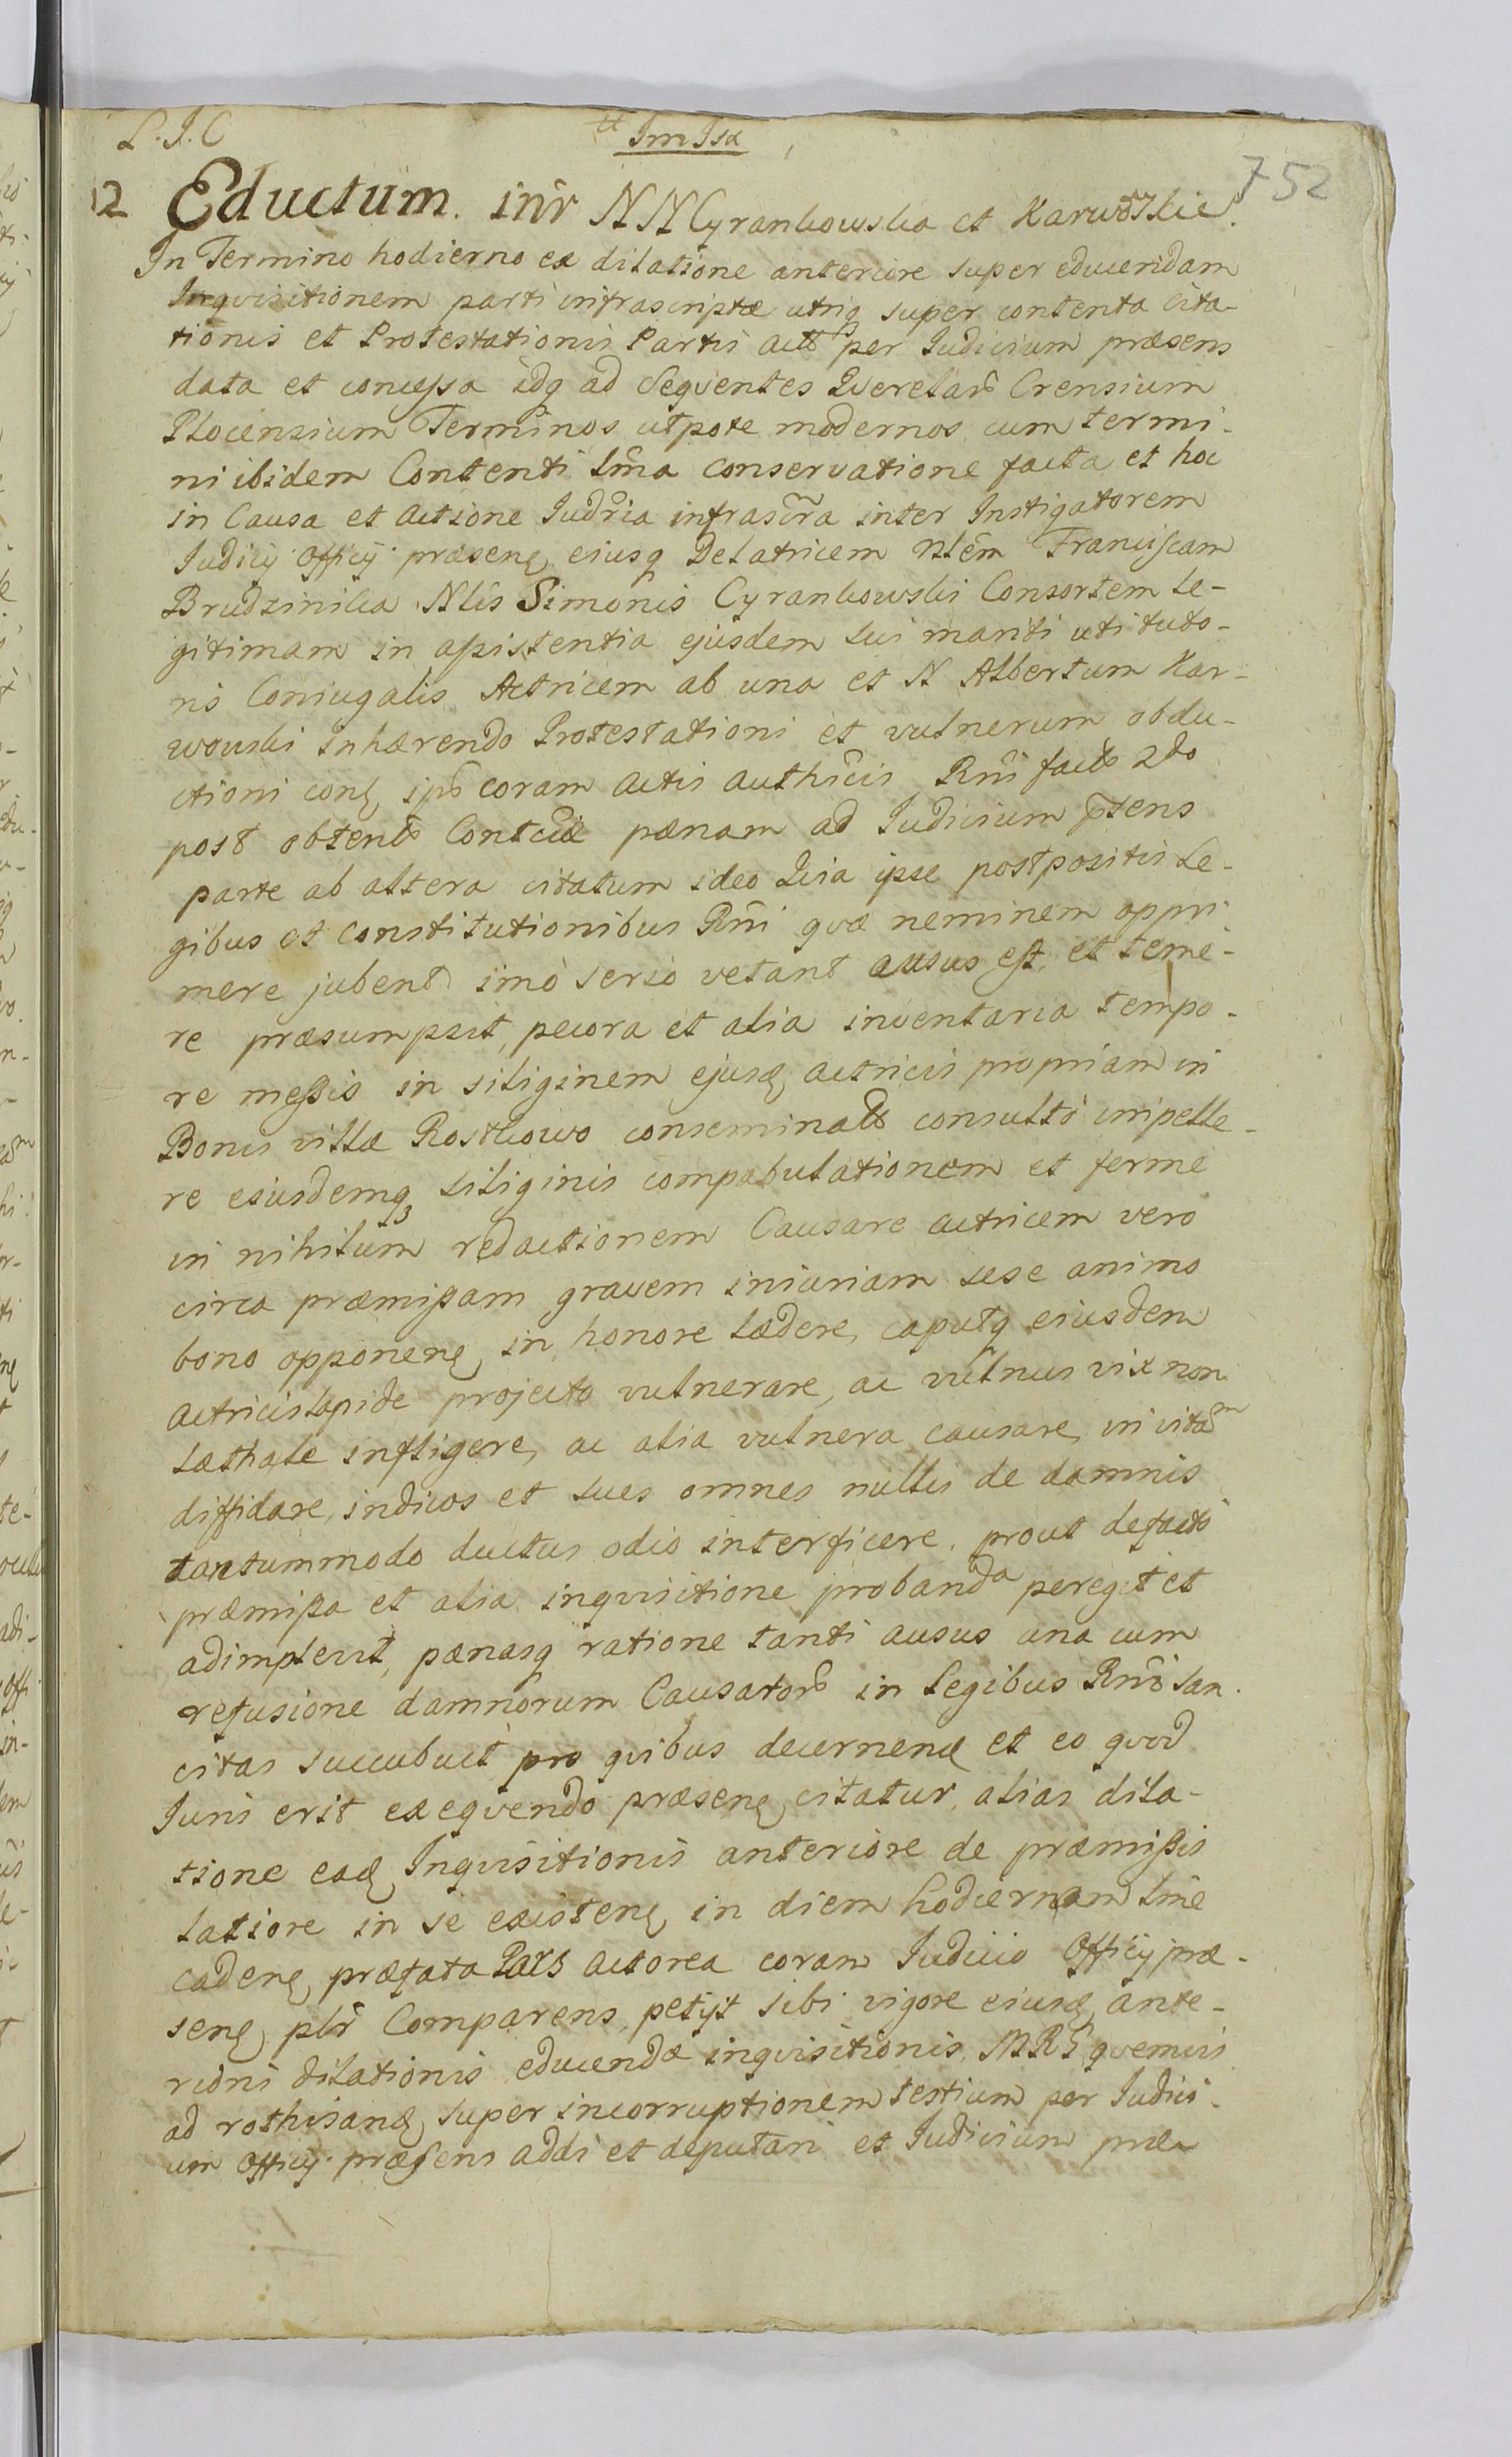 L. J. C
Im Isa
752
12 Eductum. inr̃ NN Cyrankowska et Karwowskie.
In Termino hodierno ex dilatione anteriore super educendam
Inqvisitionem parti infrascriptæ utriq super contenta Cita-
tionis et Protestationis Partis per Judicium præsens
data et concessa idq ad Seqventes Qverelarũ Crensium
Plocensium Terminos utpote modernos cum termi-
ni ibidem Contenti lĩma conservatione facta et hoc
in Causa et Actione Judr̃ia infrascr̃a inter Instigatorem
Judicij Officij præsenę, eiusq Delatricem Nlẽm Franciscam
Brudzinska Nlis Simonis Cyrankowski Consortem Le-
gitimam in assistentia ejusdem sui mariti uti tuto-
ris Coniugalis Actricem ab una et N Albertum Kar-
wowski Inhærendo Protestationi et vulnerum obdu-
ctioni conę, coram Actis Authĩcis Rñi 2do
post Contciæ pænam ad Judicium p̃sens
parte ab altera citatum ideo Qvia ipse postpositis Le-
gibus et Constitutionibus Rñi qvæ neminem oppri-
mere jubent imò serio vetant ausus est, et teme-
re præsumpsit, pecora et alia inventaria tempo-
re messis in siliginem ejusdę actricis propriam in
Bonis villæ Rostkowo consultò impelle-
re eiusdemq siliginis compabulationem et ferme
in nihilum redactionem Causare actricem vero
circa præmissam gravem iniuriam sese animo
bono opponenę, in honore lædere, caputq eiusdem
actricis lapide projecto vulnerare, ac vulnus vix non
læthale infligere, ac alia vulnera causare, in vitam
diffidare, indicos et sues omnes nullis de damnis
tantummodo ductus odio interficere, prout defacto
præmissa et alia inqvisitione probanda peregit et
adimplevit, pænasq ratione tanti ausus una cum
refusione damnorum Causatorũ in Legibus Rñi san-
citas succubuit pro qvibus decernenę et eo qvod
Juris erit exeqvendo præsenę, citatur, alias dila-
tione eadę, Inqvisitionis anteriore de præmissis
latiore in se existenę, in diem hodiernam lĩme
cadenę, præfata Pars actorea coram Judicio Officij præ-
senę, plr̃ Comparens, petijt sibi vigore eiusdę, ante-
rioris dilationis educendæ inqvisitionis MRG qvemvis
ad rothisandę, super incorruptionem testium per Judici-
um Officij præsens addi et deputari et Judicium præ-